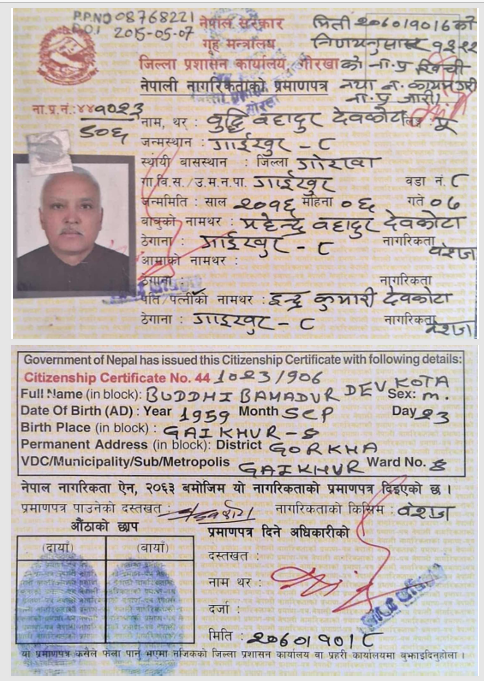 P.P.NO 08768221
D.O.I 2015-05-07
नेपाल सरकार
गृह मन्त्रालय
जिल्ला प्रशासन कार्यालय गोरखा
नेपाली नागरिकताको प्रमाणपत्र
मिति २०६०।९।१६ को
निर्णयनुसार
ना.प्र.नं.: ४४१०२३
८०६
नाम, थर : बुद्धि बहादुर देवकोटा
जन्मस्थान : गाईखुर - ८
स्थायी बासस्थान : जिल्ला गोरखा
गा.वि.स. / उ.म.न.पा. गाईखुर वडा नं. ८
जन्ममिति : साल २०१६ महिना ०६ गते ०७
बाबुको नामथर : महेन्द्र बहादुर देवकोटा
ठेगाना : गाईखुर - ८ नागरिकता वंशज
आमाको नामथर :
ठेगाना : नागरिकता
पति/पत्नीको नामथर : इन्द्र कुमारी देवकोटा
ठेगाना : गाईखुर - ८ नागरिकता वंशज
Government of Nepal has issued this Citizenship Certificate with following details:
Citizenship Certificate No. 44 1023/906
Full Name (in block): BUDDHI BAHADUR DEVKOTA Sex: M.
Date Of Birth (AD) : Year 1959 Month SEP Day 23
Birth Place (in block) : GAIKHUR - 8
Permanent Address (in block): District GORKHA
VDC/Municipality/Sub/Metropolis GAIKHUR Ward No. 8
नेपाल नागरिकता ऐन, २०६३ बमोजिम यो नागरिकताको प्रमाणपत्र दिइएको छ ।
प्रमाणपत्र पाउनेको दस्तखत : नागरिकताको किसिम : वंशज
औंठाको छाप प्रमाणपत्र दिने अधिकारीको
(दायाँ) (बायाँ)
दस्तखत :
नाम थर :
दर्जा :
मिति : २०६०।९०।८
यो प्रमाणपत्र कसैले फेला पारे भएमा नजिकको जिल्ला प्रशासन कार्यालय वा प्रहरी कार्यालयमा बुझाइदिनुहोला ।